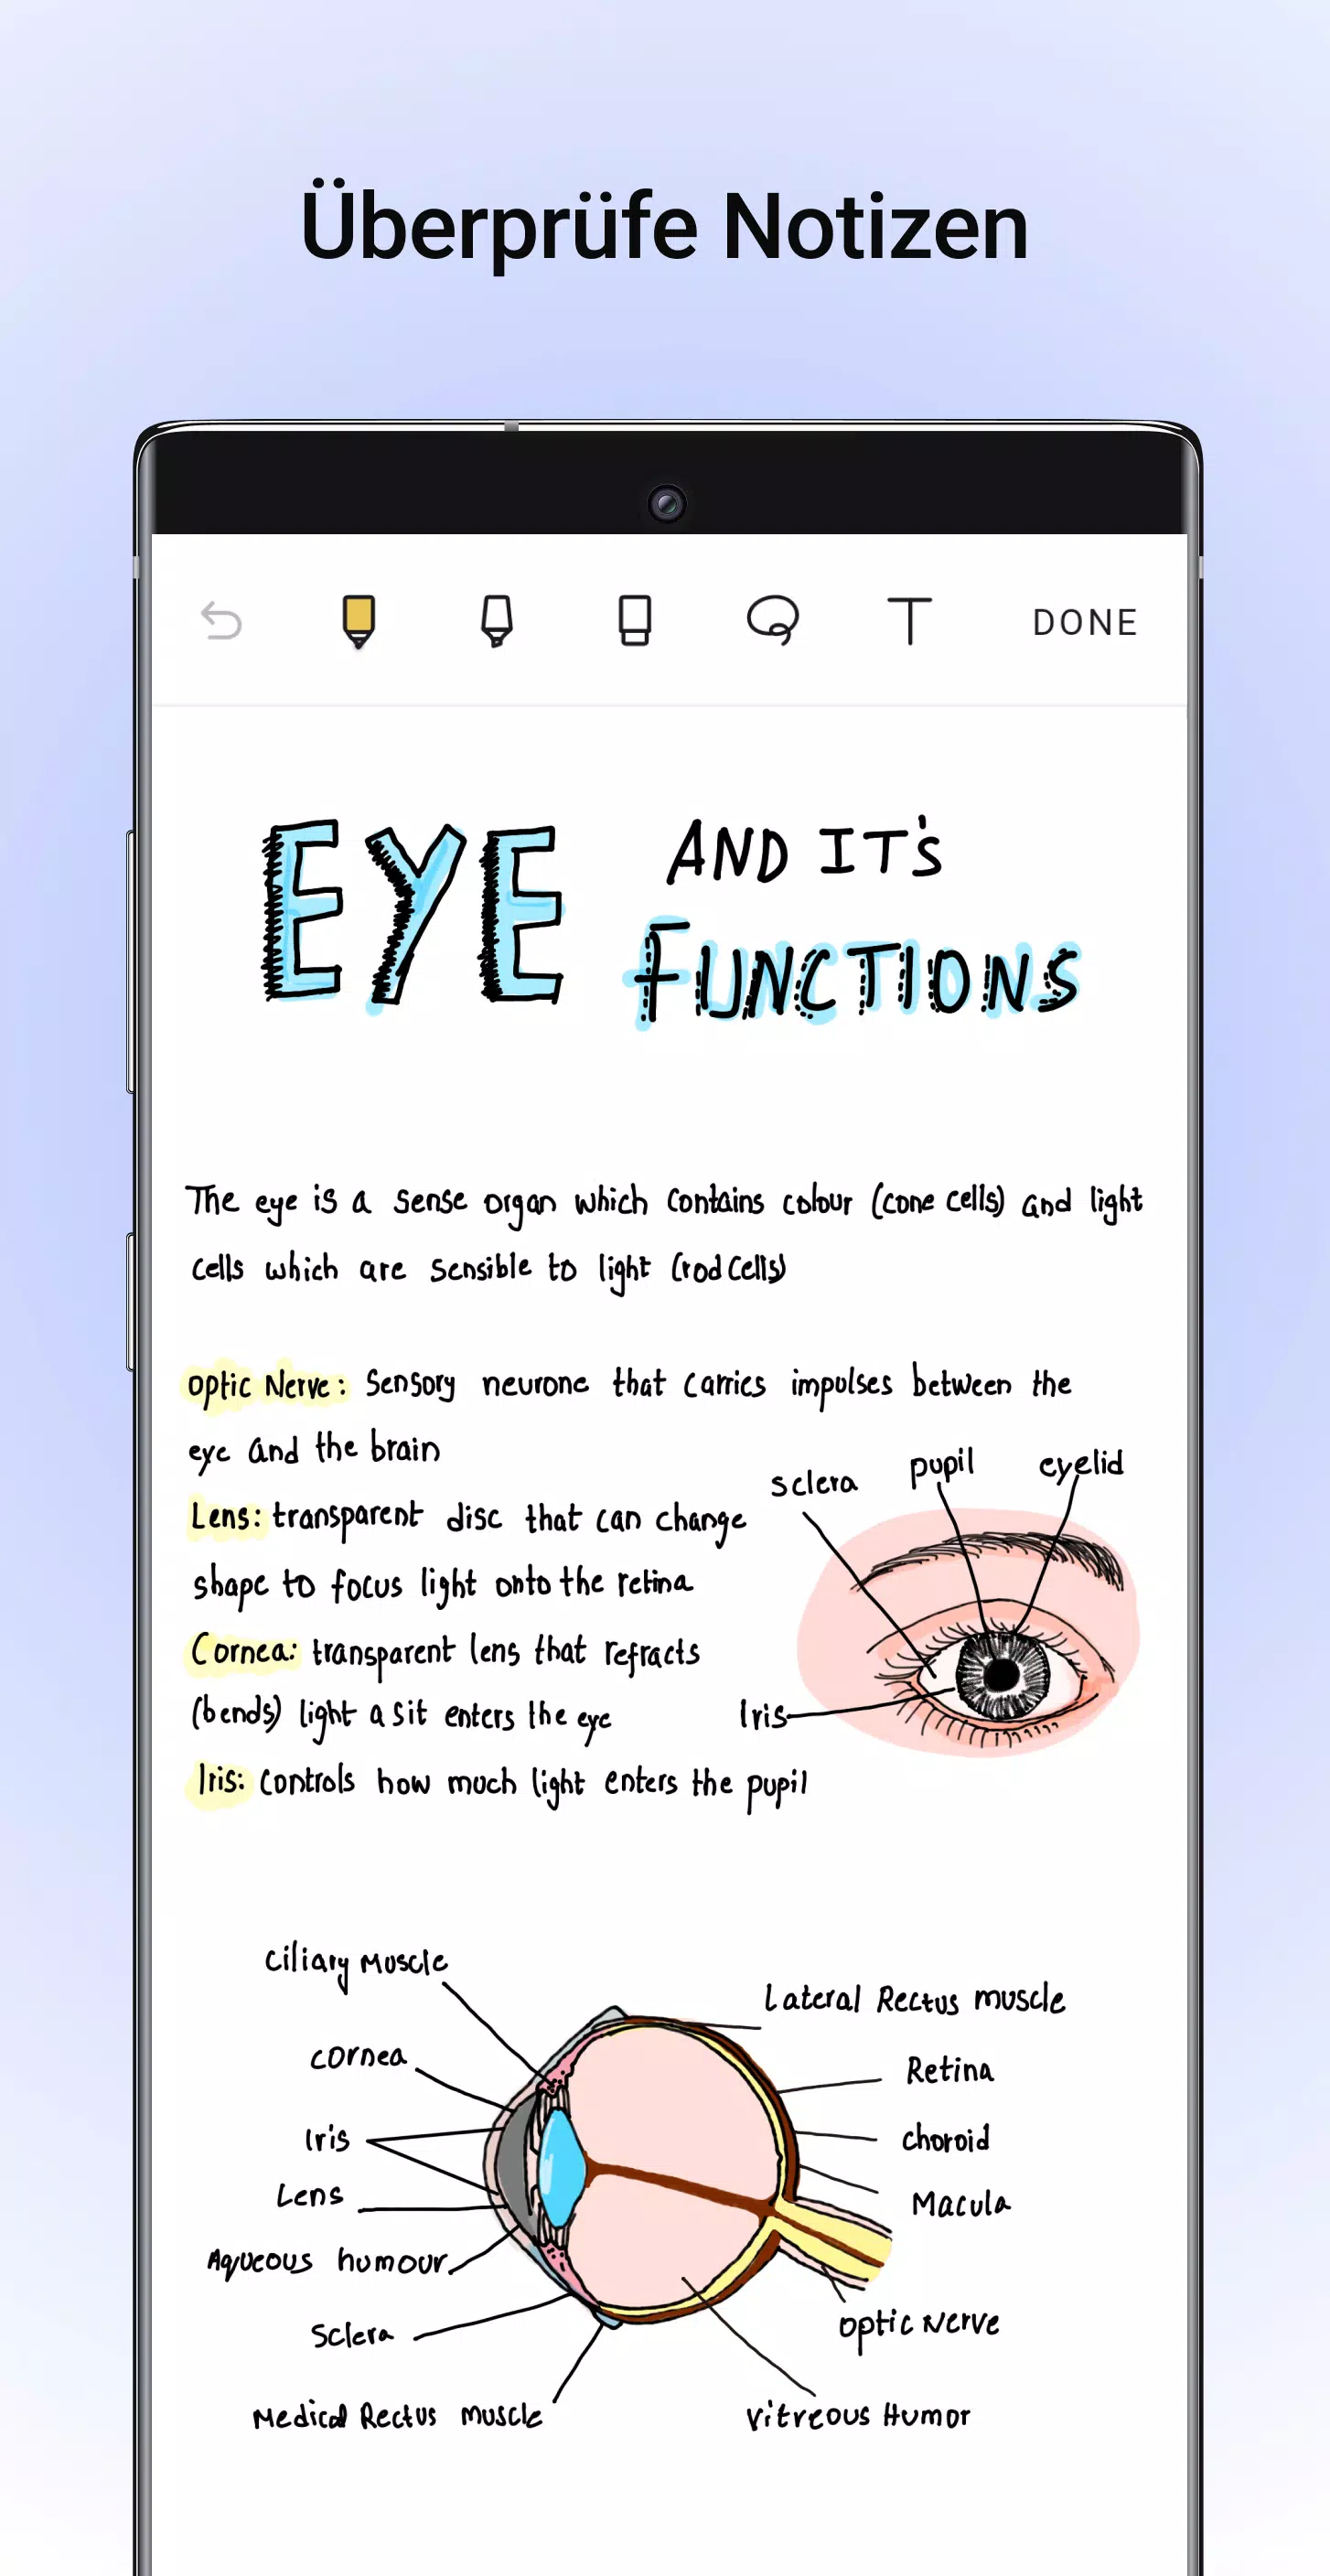 Überprüfe Notizen
DONE
EYE AND IT'S
FUNCTIONS
The eye is a sense organ which contains colour (cone cells) and light
cells which are sensible to light (rod cells)
Optic Nerve: Sensory neurone that carries impulses between the
eye and the brain
sclera pupil eyelid
Lens: transparent disc that can change
shape to focus light onto the retina
Cornea: transparent lens that refracts
(bends) light a sit enters the eye
Iris
Iris: Controls how much light enters the pupil
Ciliary Muscle
Lateral Rectus muscle
cornea
Retina
Iris
choroid
Lens
Macula
Aqueous humour
Optic Nerve
Sclera
Medical Rectus muscle
Vitreous Humor